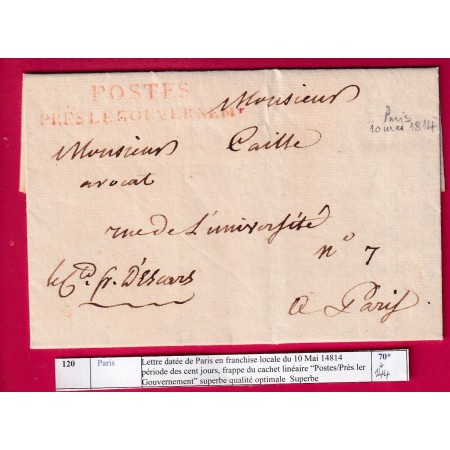 POSTES
PRÈS LE GOUVERNEMT
Monsieur
Monsieur Caille
avocat
rue de L'université
n° 7
le Cte. fr. D'Escars
a Paris
Paris
10 mai 1814
120 Paris Lettre datée de Paris en franchise locale du 10 Mai 14814 70*
période des cent jours, frappe du cachet linéaire "Postes/Près ler
Gouvernement" superbe qualité optimale Superbe
144